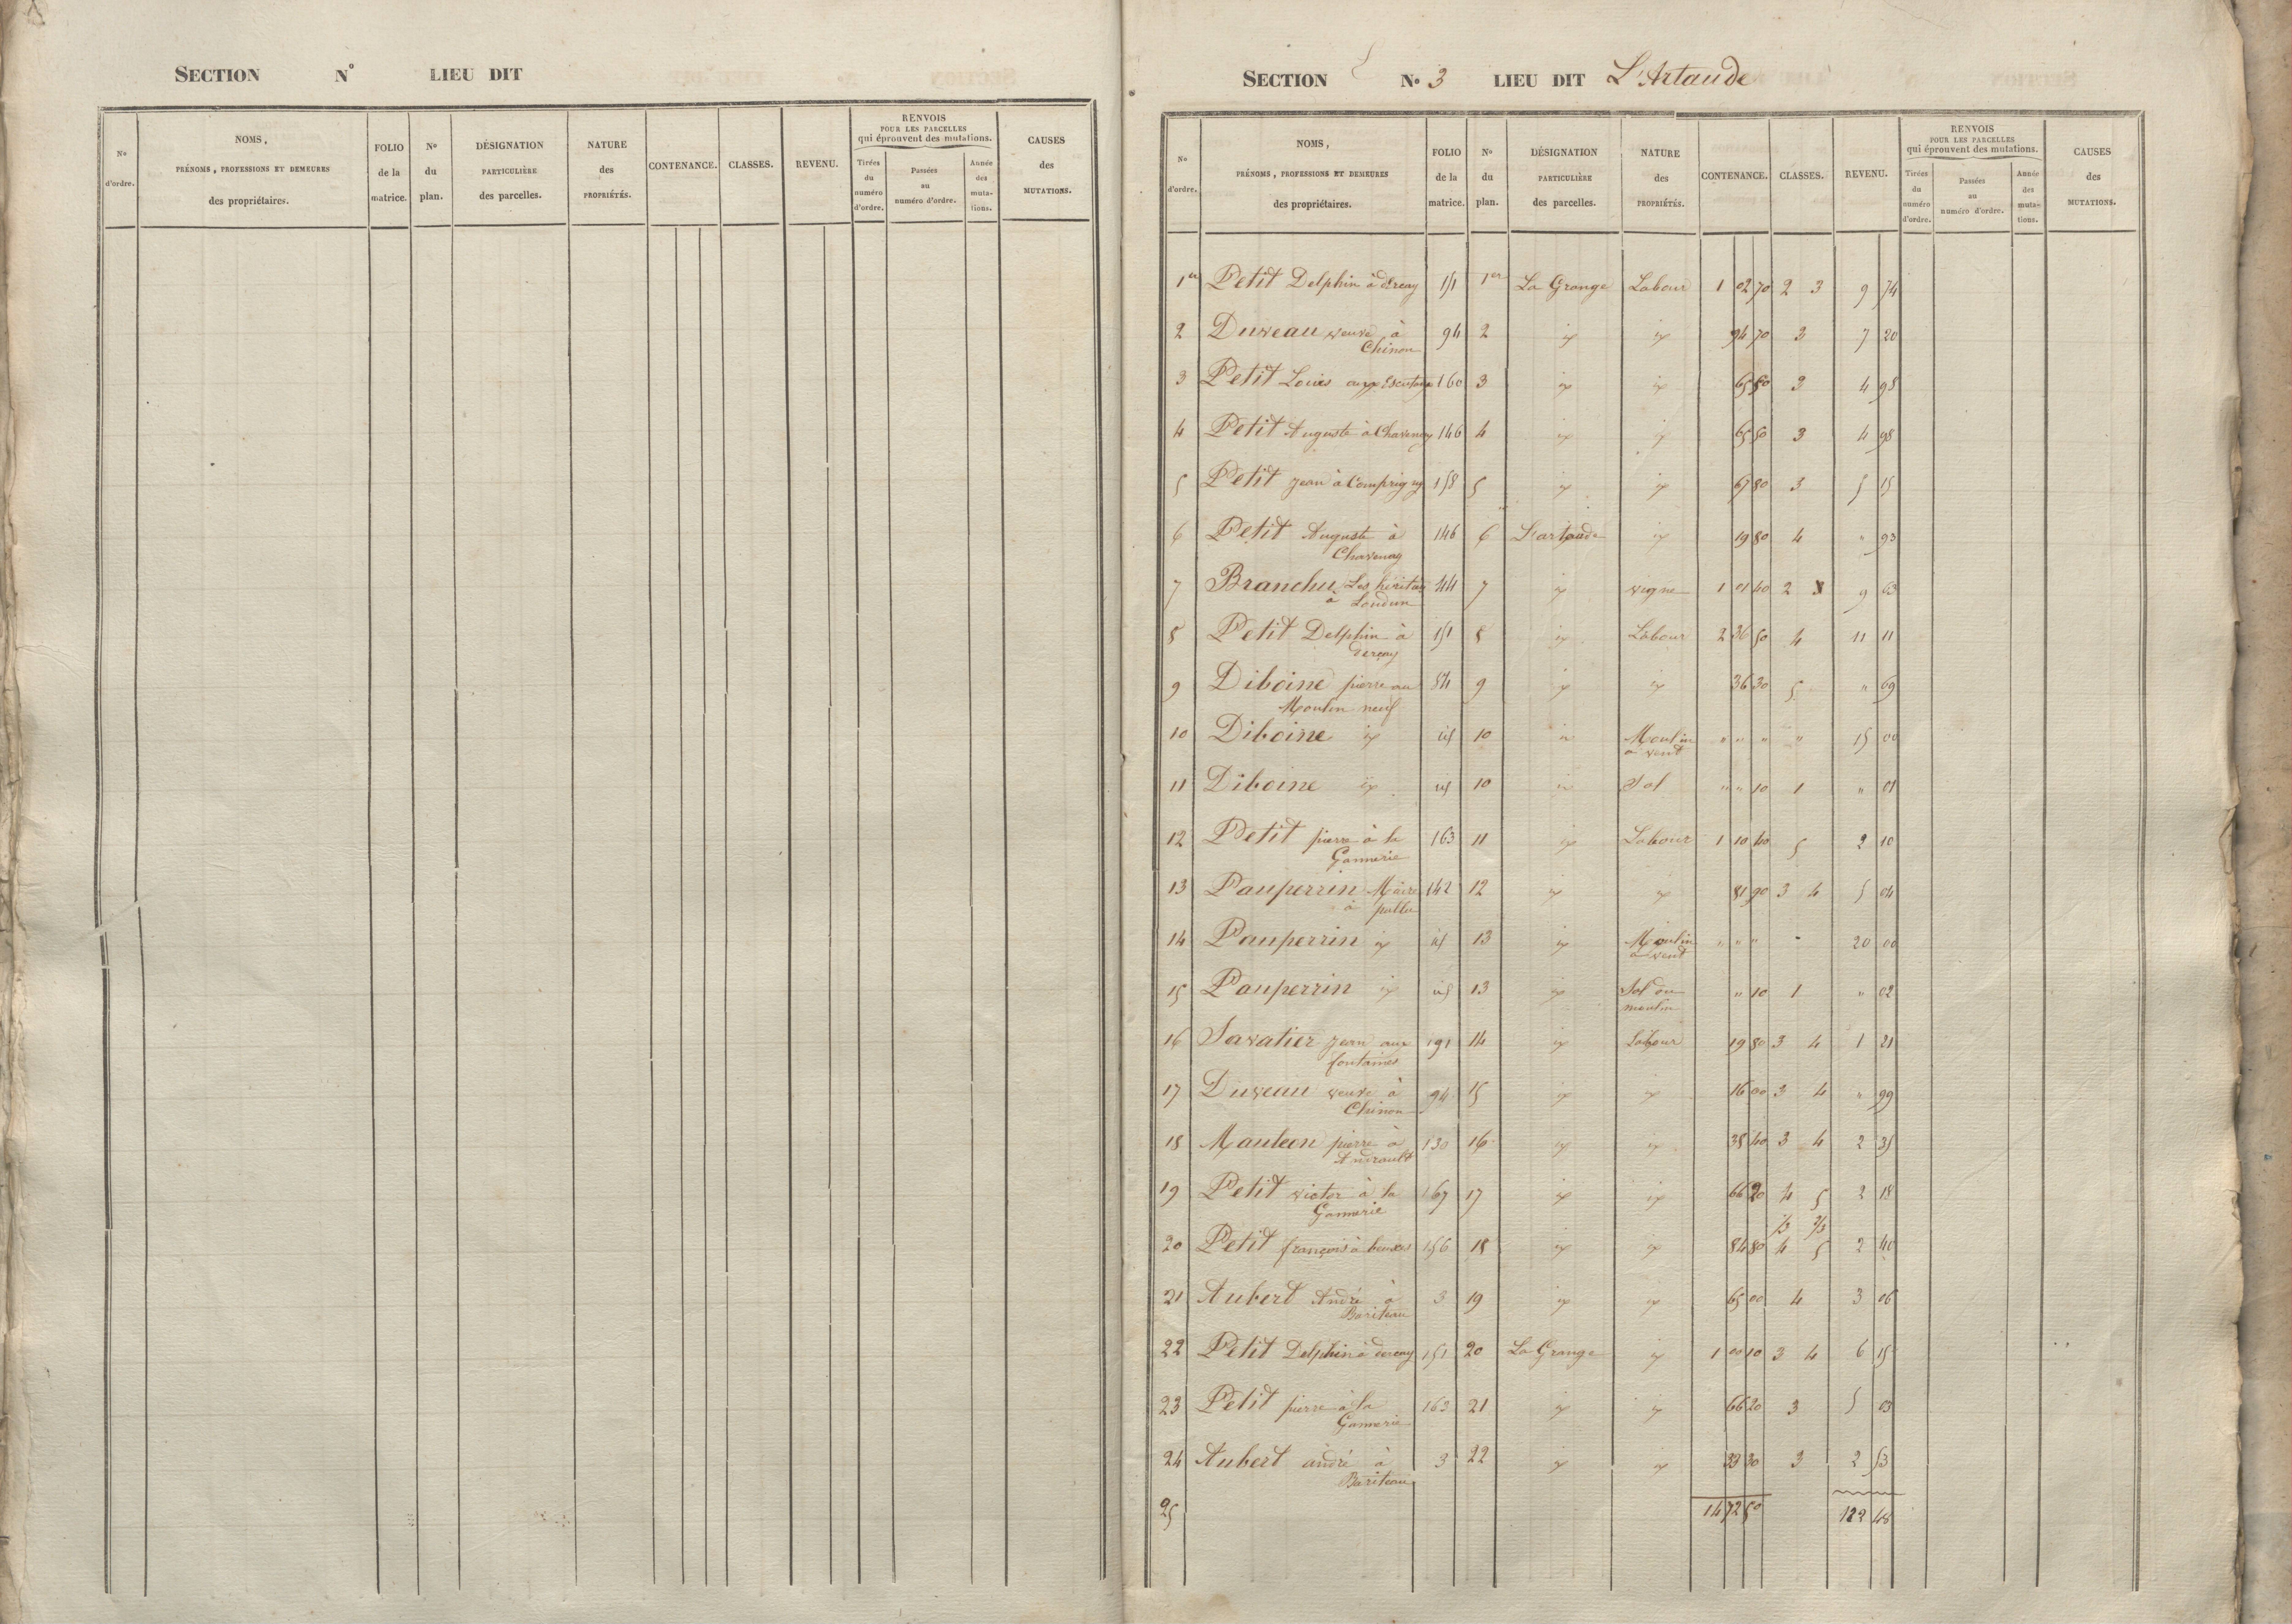 SECTION N° LIEU DIT
N° d'ordre. NOMS, PRÉNOMS, PROFESSIONS ET DEMEURES des propriétaires. FOLIO de la matrice. N° du plan. DÉSIGNATION PARTICULIÈRE des parcelles. NATURE des PROPRIÉTÉS. CONTENANCE. CLASSES. REVENU. RENVOIS POUR LES PARCELLES qui éprouvent des mutations. Tirées du numéro d'ordre. Passées au numéro d'ordre. Année des mutations. CAUSES des MUTATIONS.
SECTION N° 3 LIEU DIT L'Artaude
N° d'ordre. NOMS, PRÉNOMS, PROFESSIONS ET DEMEURES des propriétaires. FOLIO de la matrice. N° du plan. DÉSIGNATION PARTICULIÈRE des parcelles. NATURE des PROPRIÉTÉS. CONTENANCE. CLASSES. REVENU. RENVOIS POUR LES PARCELLES qui éprouvent des mutations. Tirées du numéro d'ordre. Passées au numéro d'ordre. Année des mutations. CAUSES des MUTATIONS.
1er Petit Delphin à dercay 151 1er La Grange Labour 1 02 70 2 3 9 74
2 Duveau veuve à 94 2 id id 94 70 3 7 20
Chinon
3 Petit Louis aux 160 3 id id 65 50 3 4 98
4 Petit Auguste à Chavenay 146 4 id id 65 50 3 4 98
5 Petit jean à Comprigny 158 5 id id 67 80 3 5 15
6 Petit Auguste à 146 6 L'artaude id 19 80 4 " 93
Chavenay
7 Branchu Les héritiers 44 7 id vigne 1 01 40 2 9 63
à Loudun
8 Petit Delphin à 151 8 id Labour 2 36 50 4 11 11
dercay
9 Diboine pierre au 84 9 id id 36 30 5 " 69
Moulin neuf
10 Diboine id id 10 id Moulin " " " " 15 00
a vent
11 Diboine id id 10 id Sol " " 10 1 " 01
12 Petit pierre à la 163 11 id Labour 1 10 40 5 2 10
Gannerie
13 Pauperrin Maire 142 12 id id 81 90 3 4 5 04
à pullu
14 Pauperrin id id 13 id Moulin " " " " 20 00
a vent
15 Pauperrin id id 13 id Sol du " 10 1 " 02
moulin
16 Savatier jean aux 191 14 id Labour 19 80 3 4 1 21
fontaines
17 Duveau veuve à 94 15 id id 16 00 3 4 " 99
Chinon
18 Mauleon pierre à 130 16 id id 38 40 3 4 2 35
Andrault
19 Petit victor à la 167 17 id id 66 20 4 5 2 18
Gannerie
1/3 2/3
20 Petit françois à beuxes 156 18 id id 84 80 4 5 2 40
21 Aubert André à 3 19 id id 65 00 4 3 06
Bariteau
22 Petit Delphin à dercay 151 20 La Grange id 1 00 10 3 4 6 15
23 Petit pierre à la 163 21 id id 66 20 3 5 03
Gannerie
24 Aubert andré à 3 22 id id 33 30 3 2 53
Bariteau
25 14 72 50 122 48